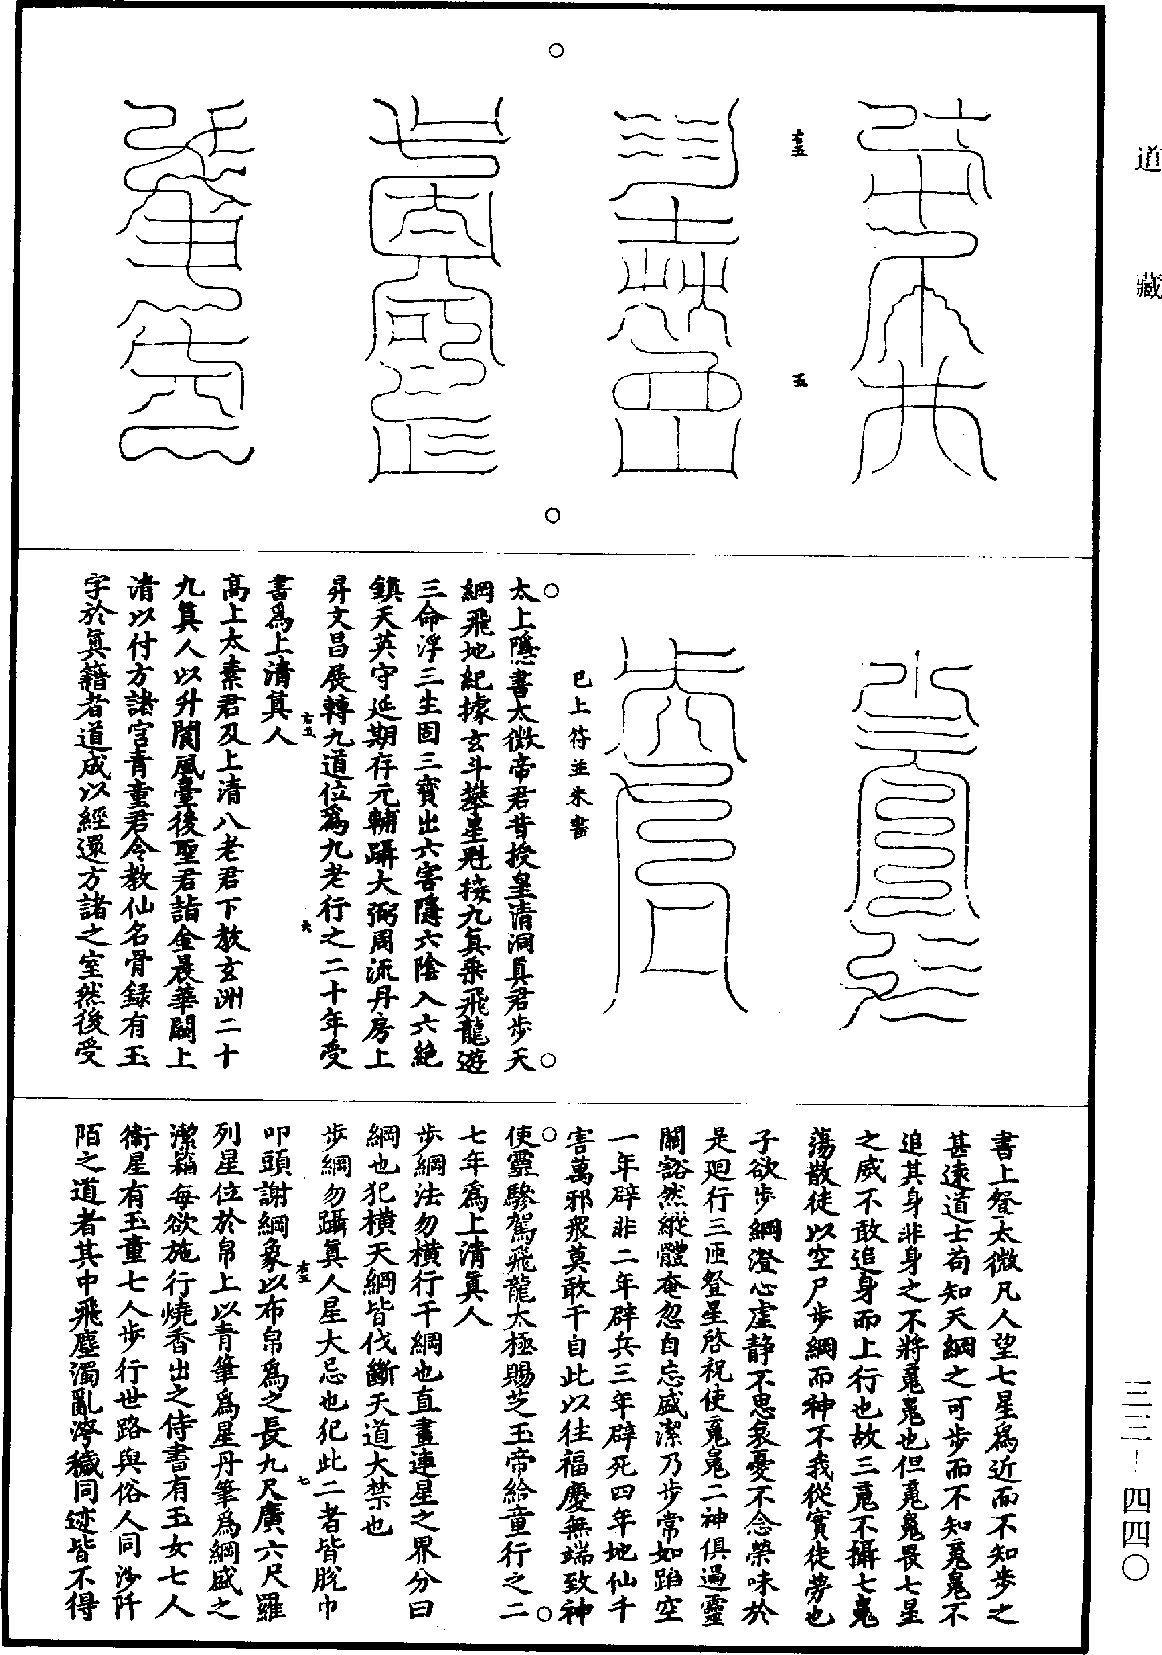 道藏
三三—四四〇
右五
五
已上符並朱書
太上隱書太微帝君昔授皇清洞真君步天
綱飛地紀據玄斗攀星魁接九真乘飛龍遊
三命浮三生固三寶出六害隱六陰入六絕
鎮天英守延期存元輔躡大弼周流丹房上
昇文昌展轉九道位爲九老行之二十年受
右五
六
書爲上清真人
高上太素君及上清八老君下教玄洲二十
九真人以升閬風臺後聖君詣金晨華闕上
清以付方諸宮青童君令教仙名骨録有玉
字於真籍者道成以經還方諸之室然後受
書上登太微凡人望七星爲近而不知步之
甚遠道士苟知天綱之可步而不知䰟䰟不
追其身非身之不將䰟䰟也但䰟䰟畏七星
之威不敢追身而上行也故三䰟不攝七䰟
蕩散徒以空尸步綱而神不我從實徒勞也
子欲步綱澄心虛靜不思哀憂不念榮味於
是廻行三匝登星啓祝使䰟䰟二神俱過靈
關豁然縱體奄忽自忘盛潔乃步常如蹈空
一年辟非二年辟兵三年辟死四年地仙千
害萬邪衆莫敢干自此以往福慶無端致神
使靈驂駕飛龍太極賜芝玉帝給童行之二
七年爲上清真人
步綱法勿橫行干綱也直畫連星之界分曰
綱也犯橫天綱皆伐斷天道大禁也
步綱勿躡真人星大忌也犯此二者皆脫巾
右五
七
叩頭謝綱象以布帛爲之長九尺廣六尺羅
列星位於帛上以青筆爲星丹筆爲綱盛之
潔箱每欲施行燒香出之侍書有玉女七人
衛星有玉童七人步行世路與俗人同涉阡
陌之道者其中飛塵濁亂滓穢同迹皆不得